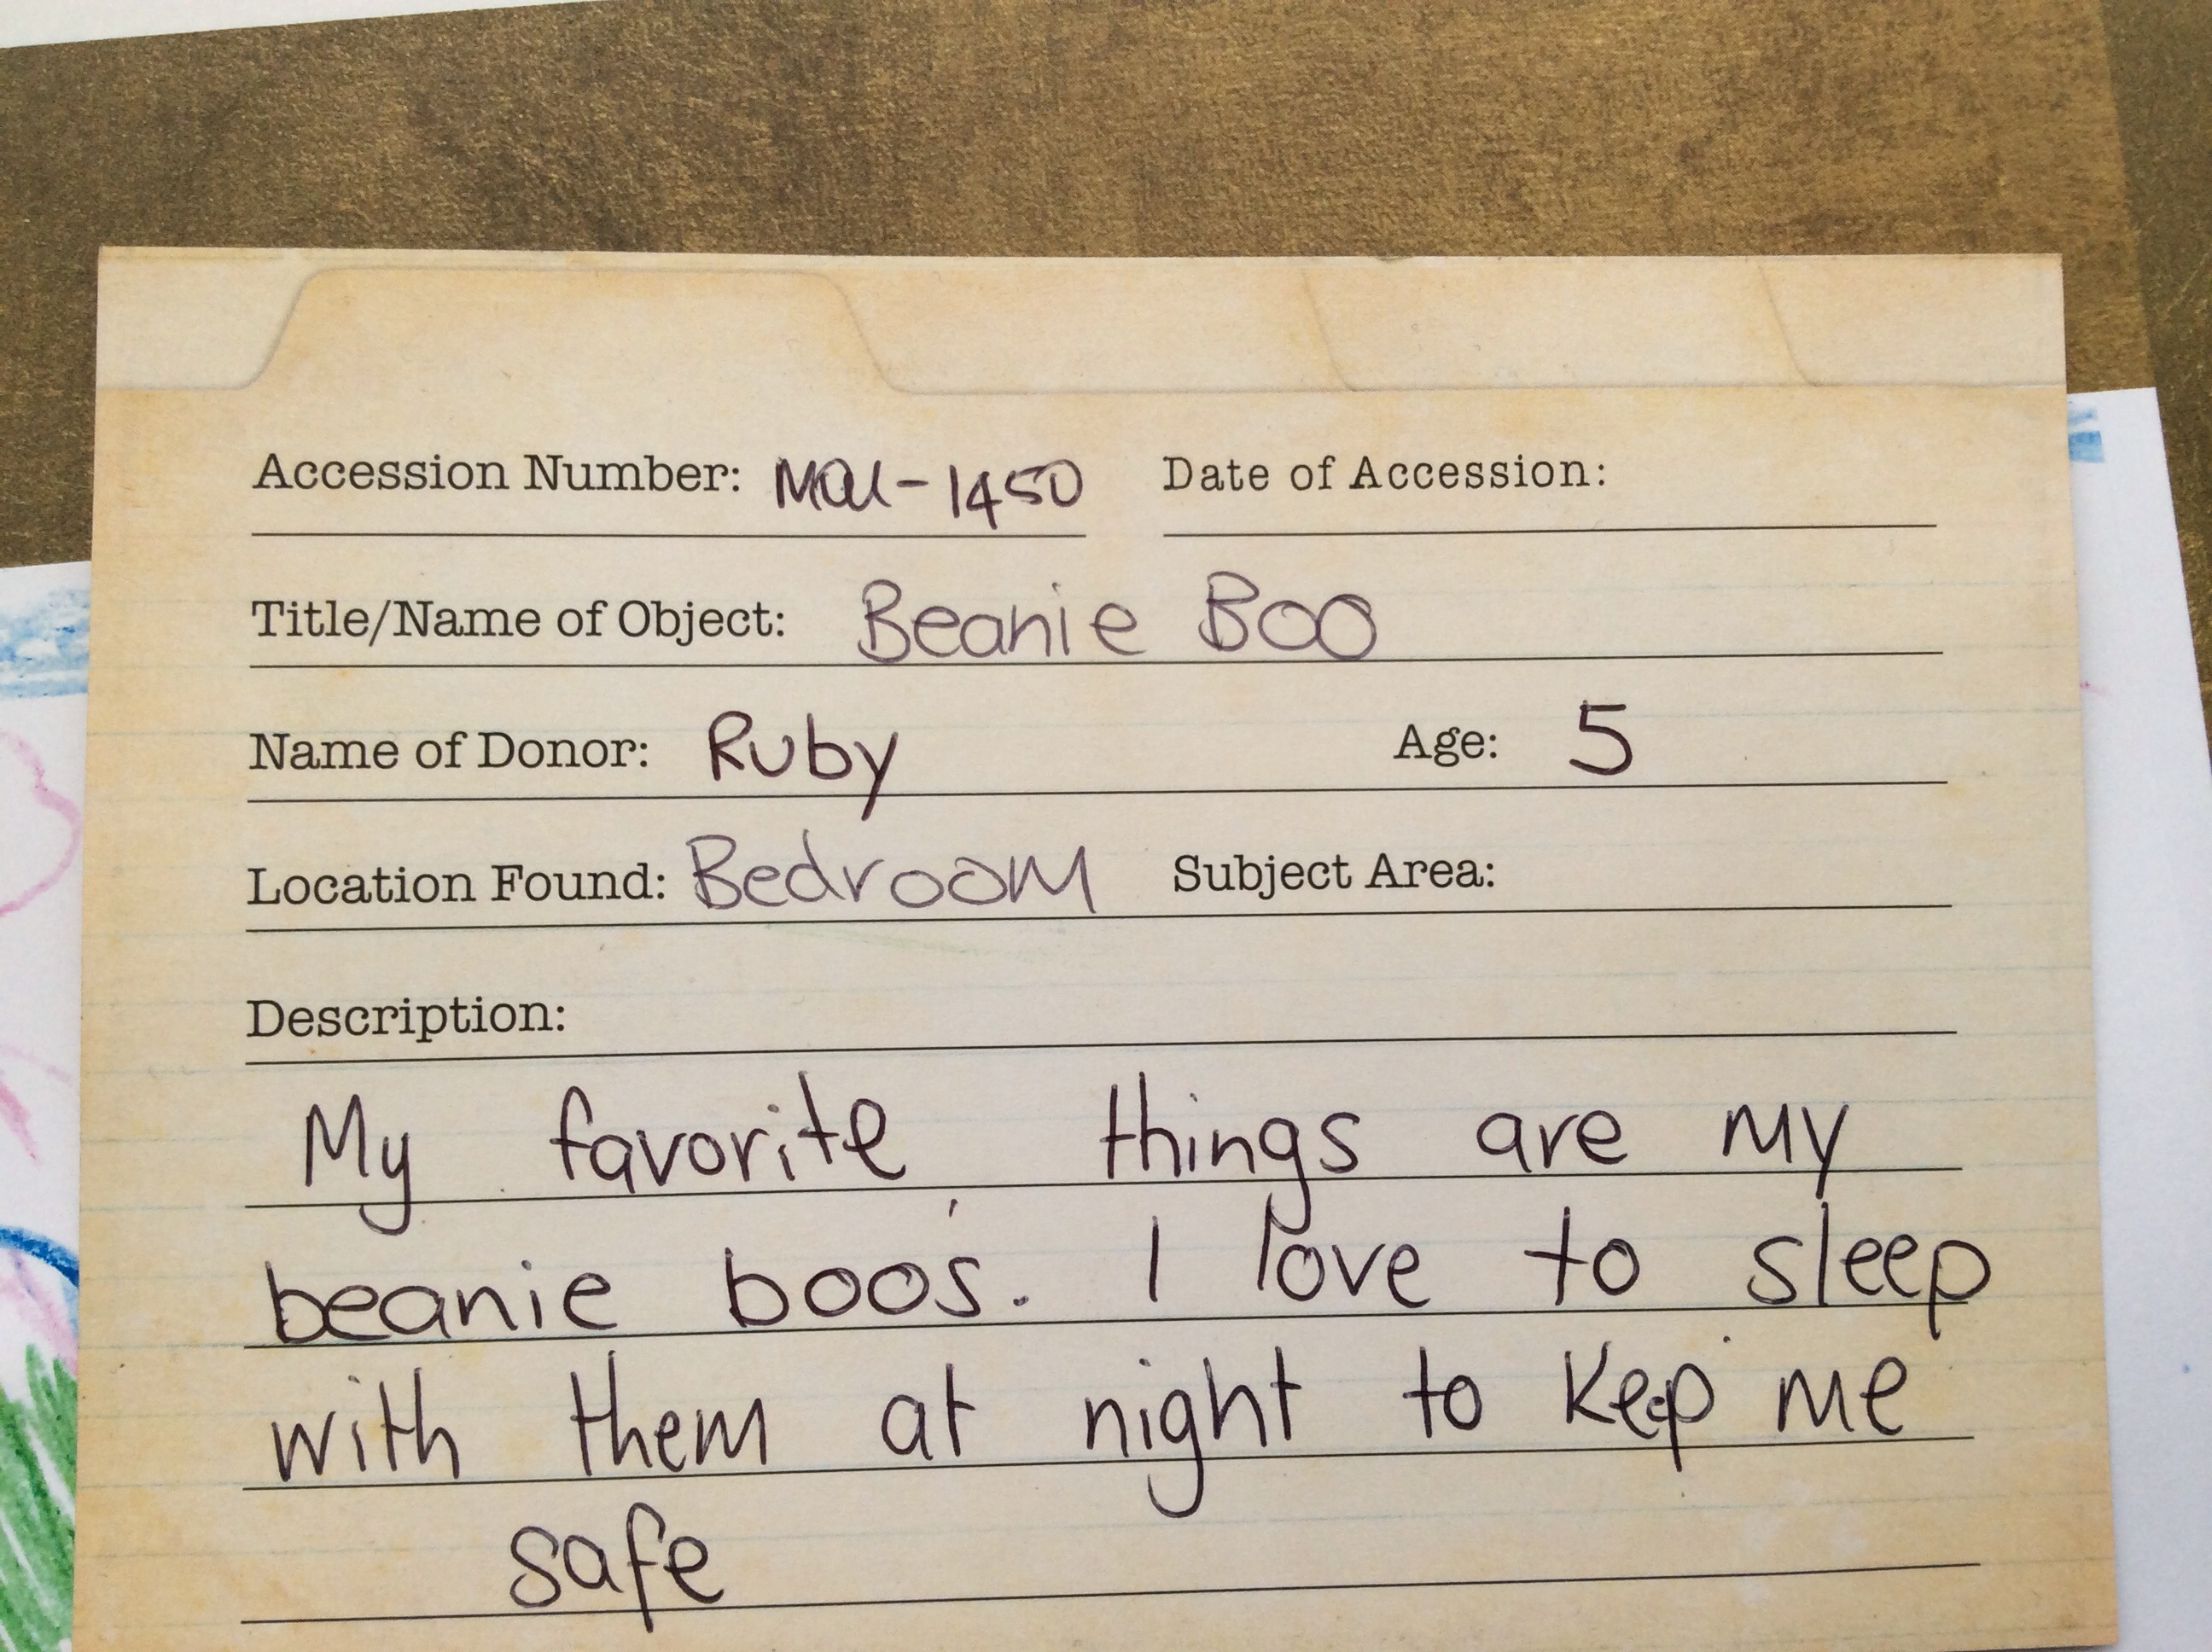 Accession Number: MOU-1450 Date of Accession:
Title/Name of Object: Beanie Boo
Name of Donor: Ruby Age: 5
Location Found: Bedroom Subject Area:
Description:
My favorite things are my
beanie boo's. I love to sleep
with them at night to keep me
safe